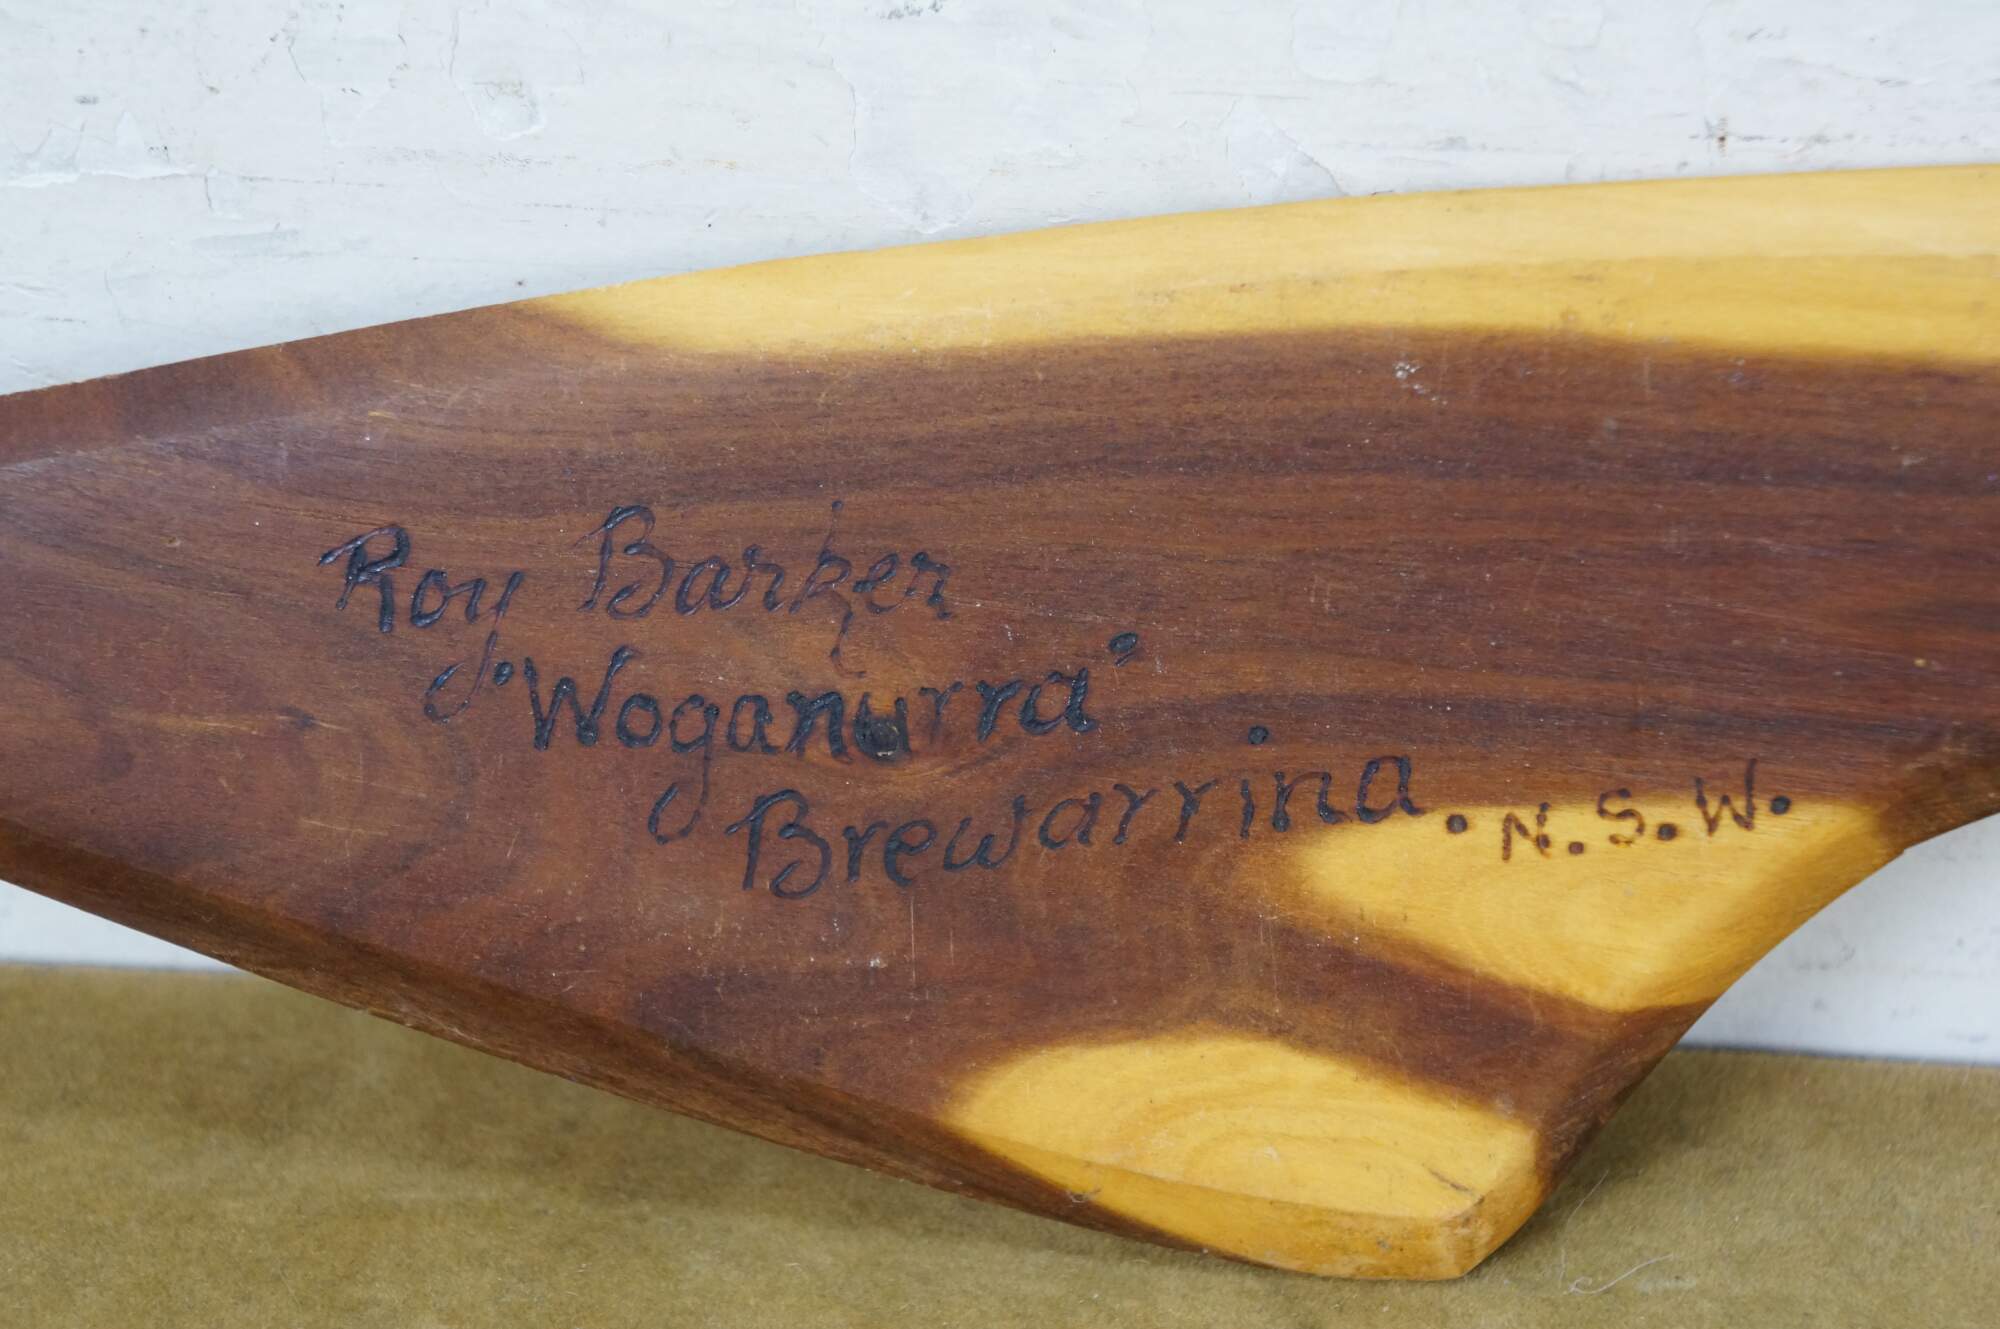 Roy Barker
"Woganurra"
Brewarrina. N.S.W.